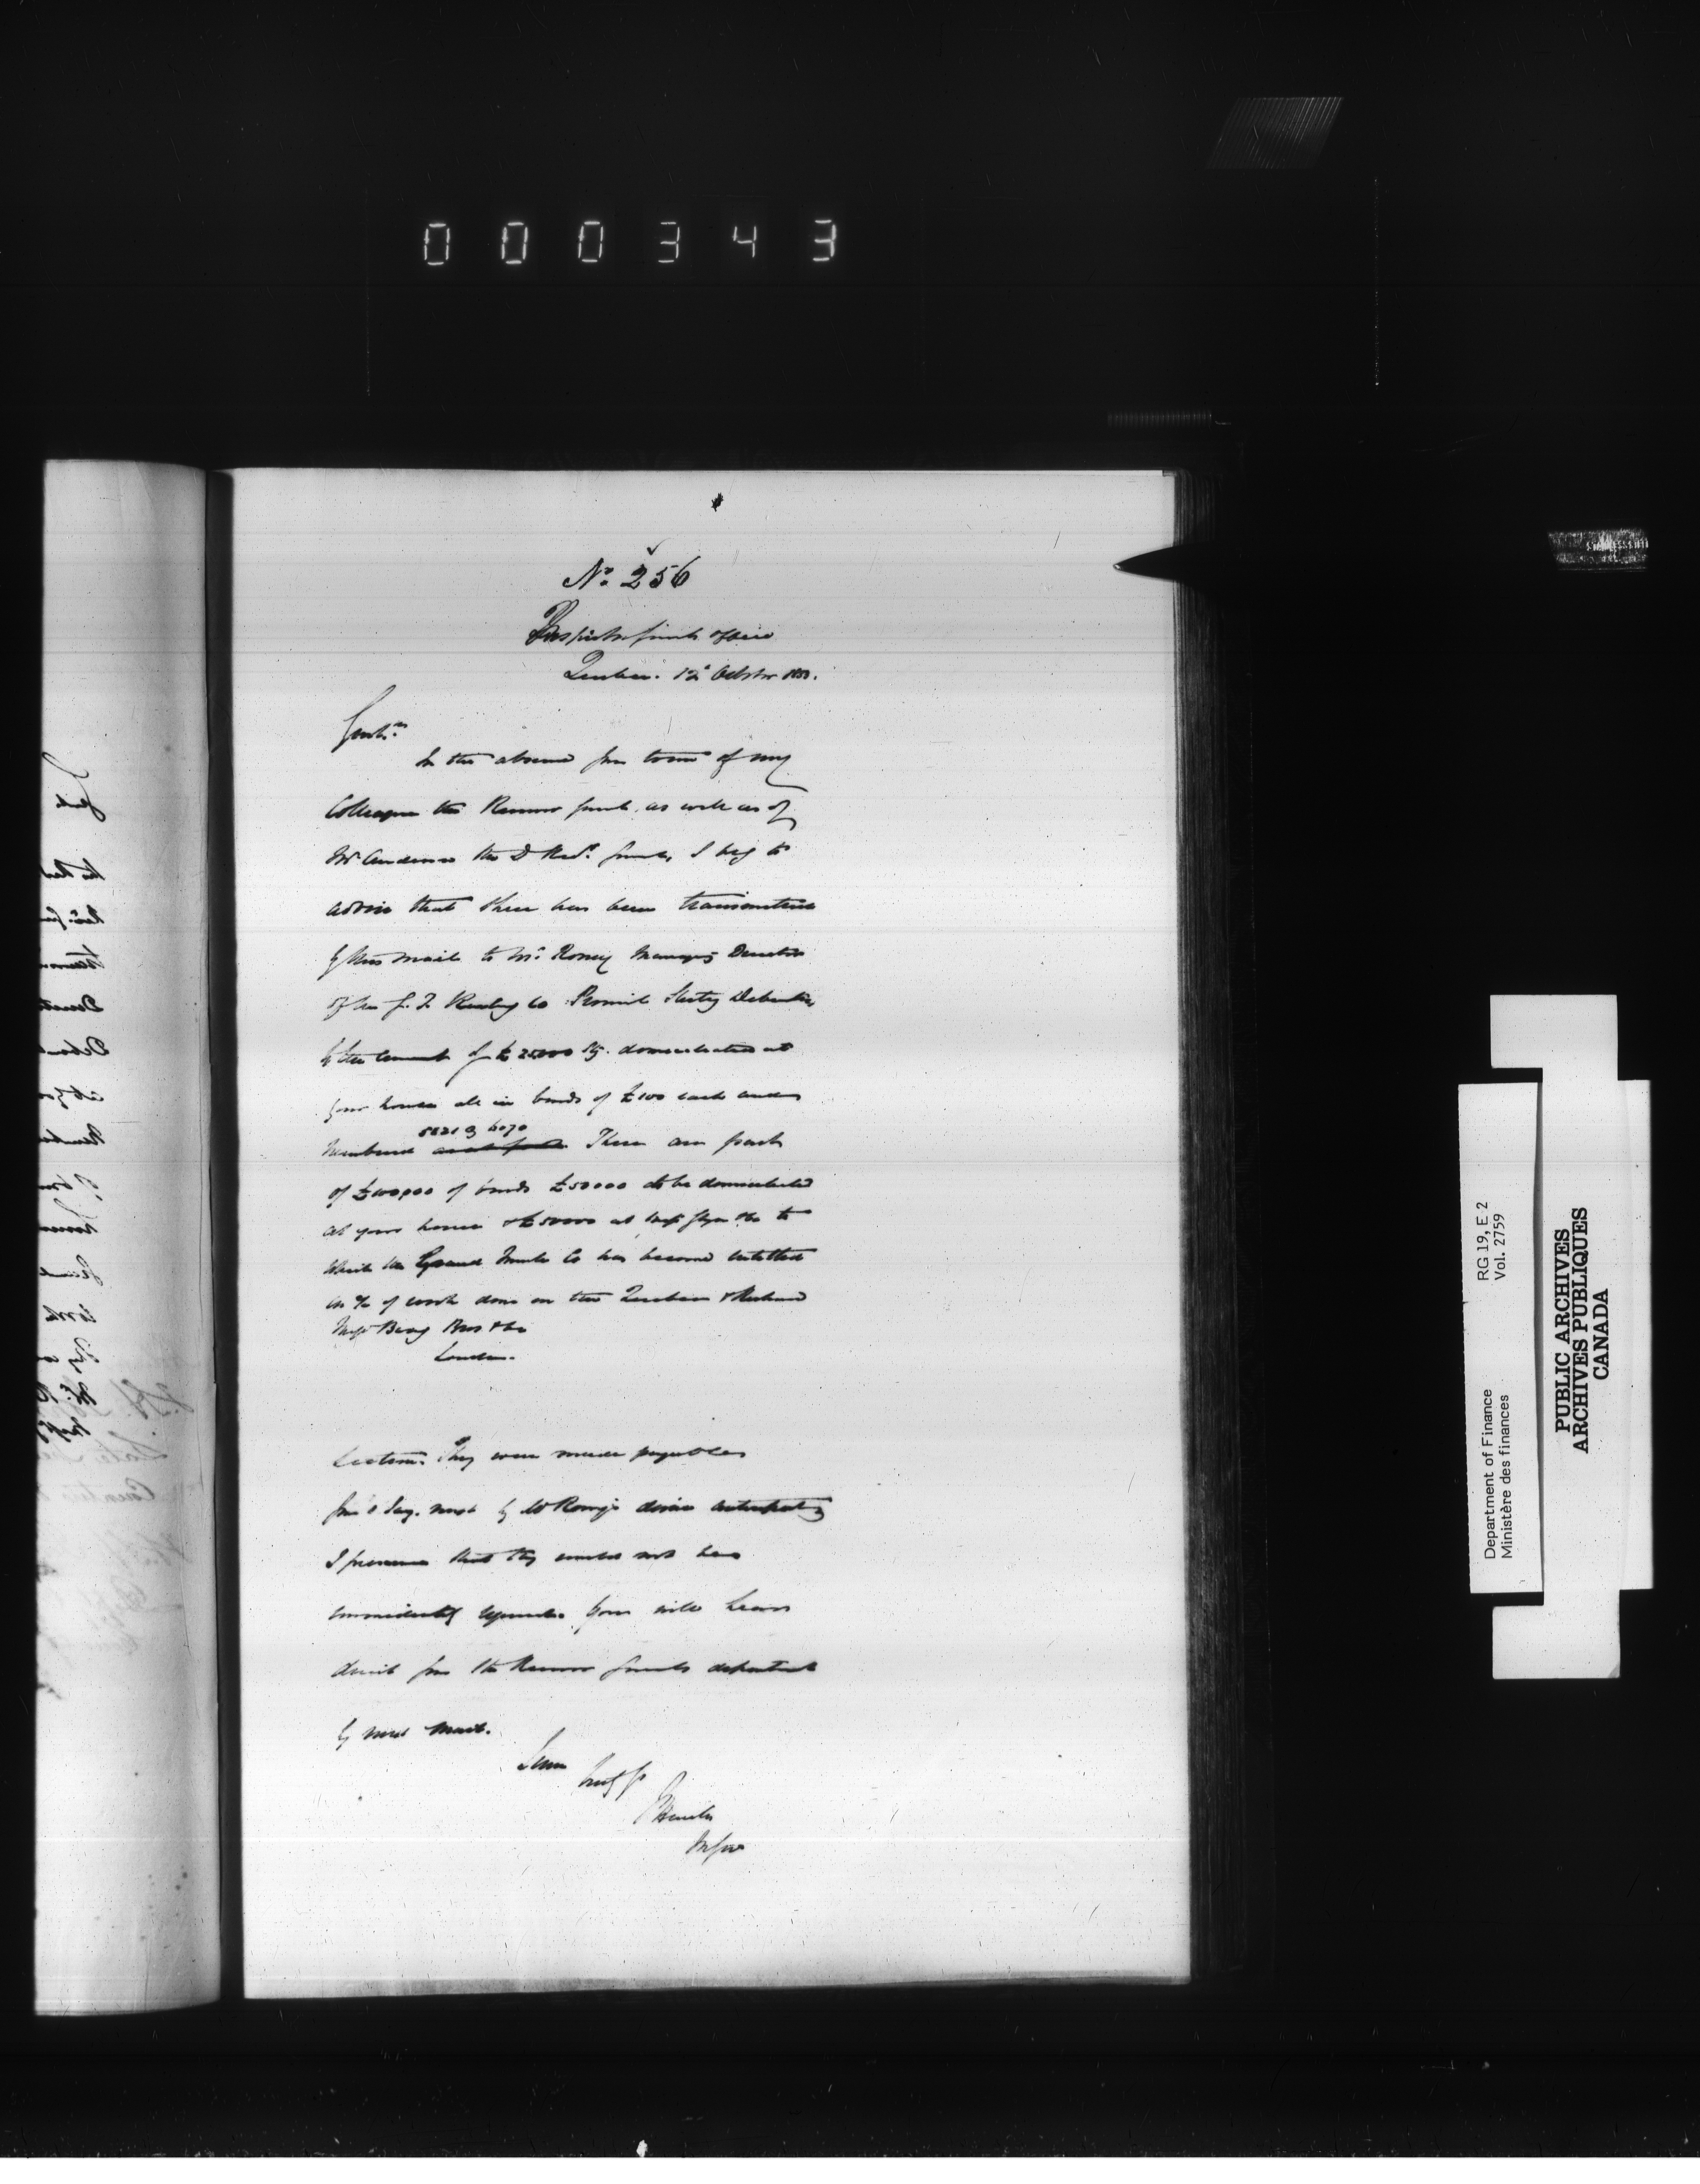 000343
No. 256
Inspector Genls office
Quebec. 12 October 1853.
Gentn
In the absence from town of my
Colleague the Receiver Genl. as well as of
Mr Anderson the D Recr. Genl, I beg to
advise that there has been transmitted
by this mail to Mr. Roney Managing Director
of the G. T. Railway Co Provincial Sterling Debentures
to the amount of £25000 Stg. domiciliated at
your house all in bonds of £100 each and
5821 @ 6070
numbered There are part
of £100,000 of bonds £50000 to be domiciliated
at your house & £50000 at Messrs Glyn &Co to
which the Grand Trunk Co has become entitled
on % of work done on the Quebec & Richmond
Messrs Baring Bros &Co
London.
Section. They were made payable
from 1 Jany. next by Mr Roney's desire
I presume that they would not be
immediately You will learn
from the Receiver Generals department
by next Mail.
I am
truly yr
F Hincks
In Gen
Department of Finance
Ministère des finances
RG 19, E 2
Vol. 2759
PUBLIC ARCHIVES
ARCHIVES PUBLIQUES
CANADA